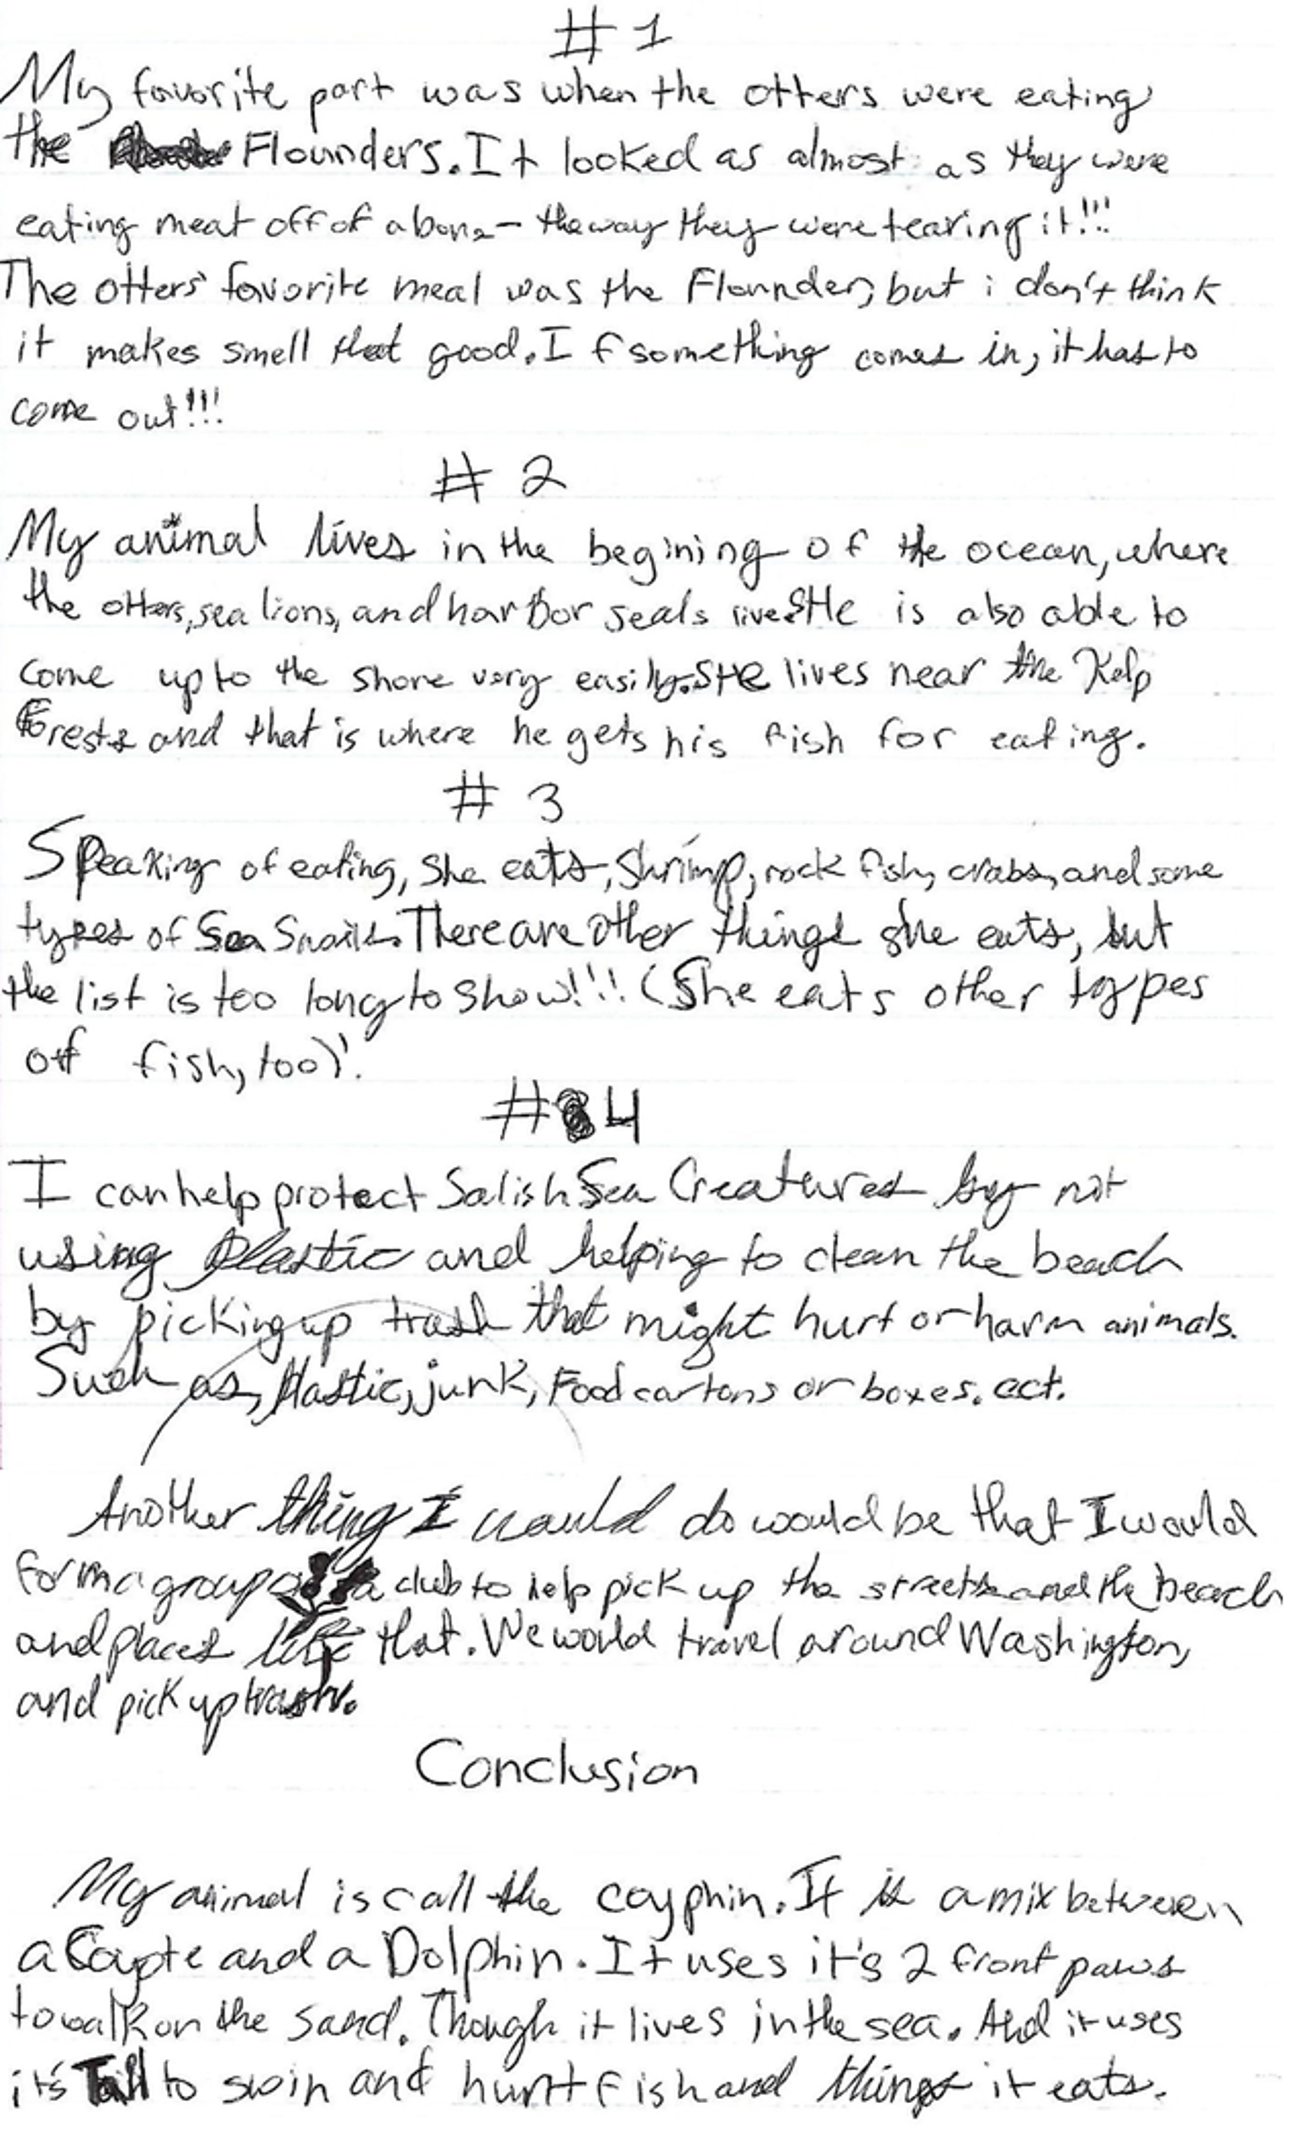 # 1
My favorite part was when the otters were eating
the Flounders. It looked as almost as they were
eating meat off of a bone - the way they were tearing it!!!
The otters' favorite meal was the Flounder, but i don't think
it makes smell that good. If something comes in, it has to
come out!!!
# 2
My animal lives in the begining of the ocean, where
the otters, sea lions, and harbor seals live. SHe is also able to
come up to the shore very easily. SHe lives near the Kelp
Forests and that is where he gets his fish for eating.
# 3
Speaking of eating, she eats, shrimp, rock fish, crabs, and some
types of Sea Snails. There are other things she eats, but
the list is too long to show!!! (She eats other types
of fish, too)!
# 4
I can help protect Salish Sea Creatures by not
using plastic and helping to clean the beach
by picking up trash that might hurt or harm animals.
Such as, Plastic, junk, Food cartons or boxes. ect.
Another thing I would do would be that I would
form a group a club to help pick up the streets and the beach
and places like that. We would travel around Washington,
and pick up trash.
Conclusion
My animal is call the coyphin. It is a mix between
a Coyote and a Dolphin. It uses it's 2 front paws
to walk on the sand. Though it lives in the sea. And it uses
it's Tail to swin and hunt fish and things it eats.